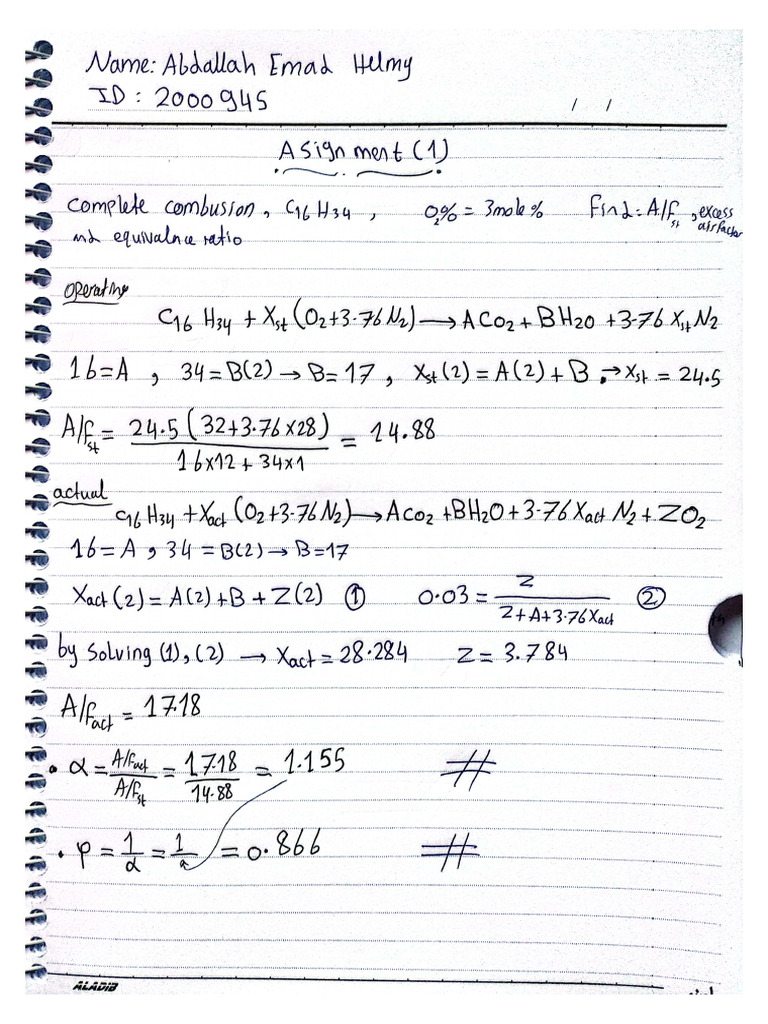 Name: Abdallah Emad Helmy
ID: 2000945
/ /
Asignment (1)
Complete combusion, C16 H34, O2% = 3mole% Find: A/Fst, excess air factor
and equivalnce ratio
operating
C16 H34 + Xst (O2+3.76N2) → ACO2 + BH2O + 3.76 Xst N2
16=A , 34=B(2) → B=17 , Xst (2) = A(2) + B → Xst = 24.5
A/fst = 24.5 (32+3.76×28) / 16×12 + 34×1 = 14.88
actual
C16 H34 + Xact (O2+3.76N2) → ACO2 + BH2O + 3.76 Xact N2 + ZO2
16=A , 34 = B(2) → B=17
Xact (2) = A(2) + B + Z(2) ① 0.03 = Z / Z+A+3.76Xact ②
by Solving (1), (2) → Xact = 28.284 Z = 3.784
A/fact = 17.18
• α = A/fact / A/fst = 17.18 / 14.88 = 1.155 #
• φ = 1/α = 1/ = 0.866 #
ALADIB